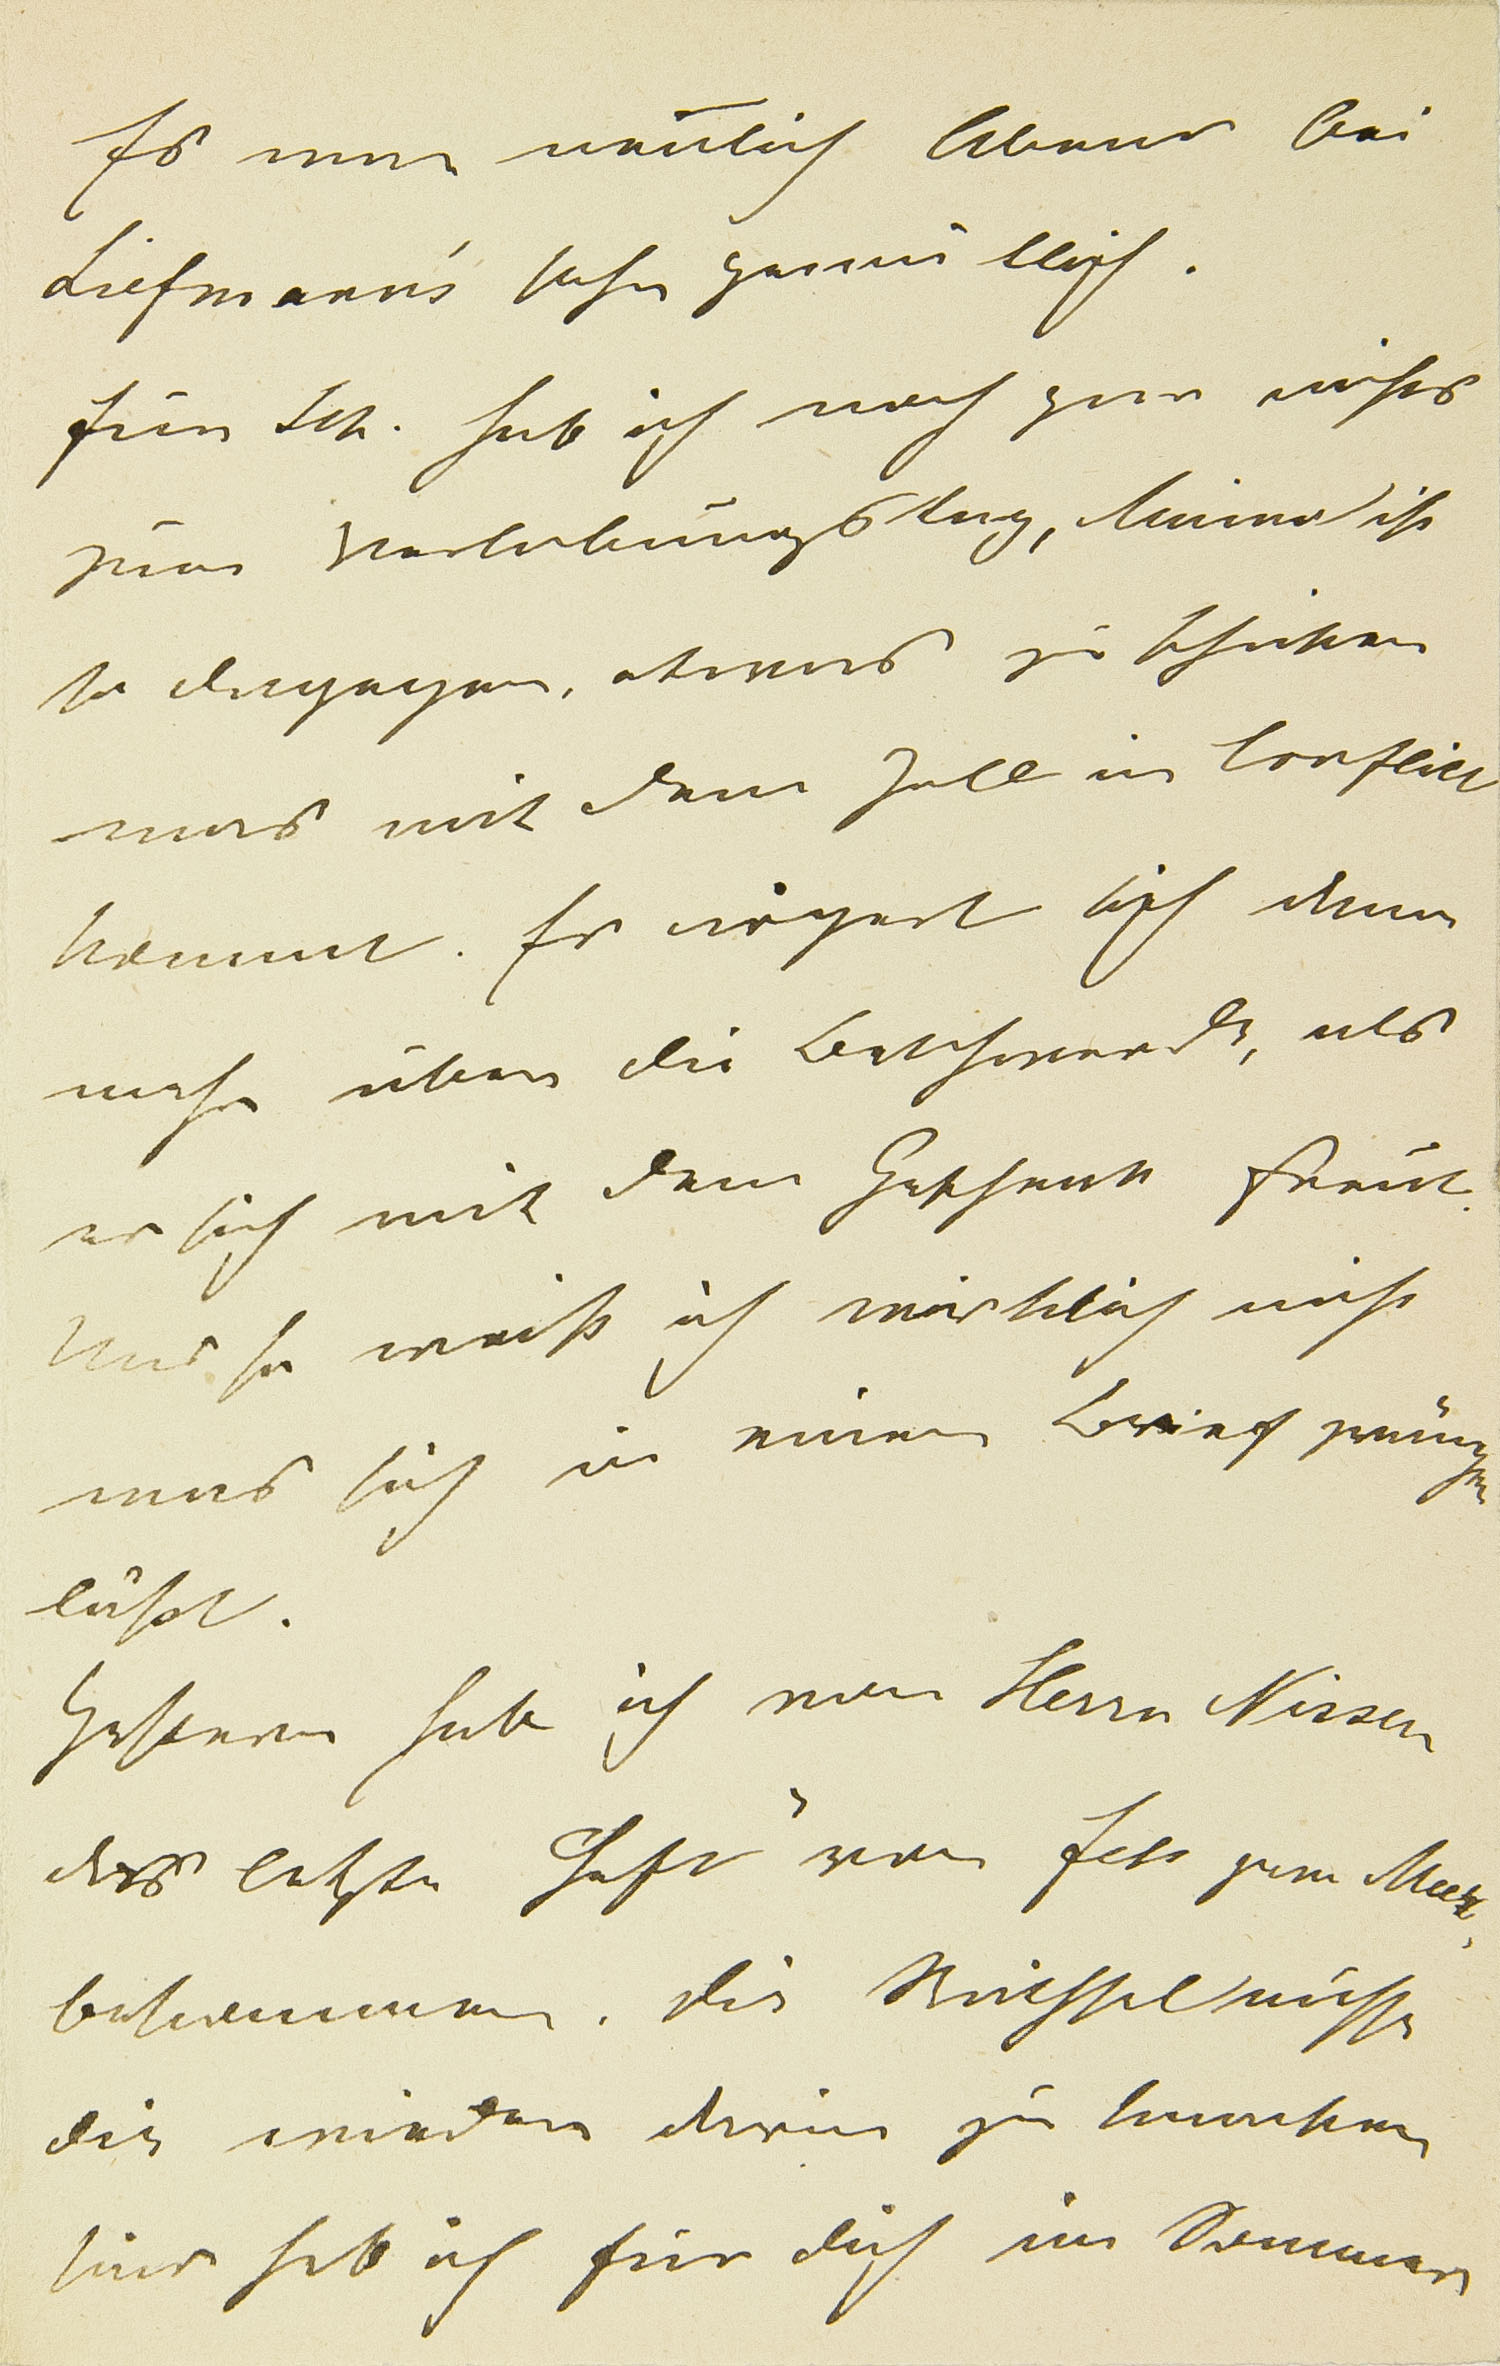 Es war neulich Abend bei
Liefmann's sehr gemütlich.
Für Sch. hab ich noch gar nichts
zum Verlobungstag, Mama ist
so dagegen, etwas zu schicken
was mit dem Zoll in Conflict
kommt. Er ärgert sich dann
mehr über die Beschwerde, als
er sich mit dem Geschenk freut.
Und so weiß ich wirklich nicht
was sich in einen Brief zwängen
läßt.
Gestern hab ich von Herrn Nissen
das letzte Heft "von Fels zum Meer"
bekommen. Die Knackmandeln
die wieder darin zu knacken
sind heb ich für dich im Sommer